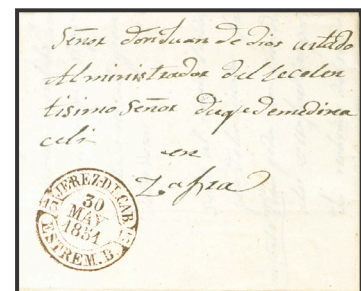 Señor don Juan de dios urtado
Alministrador del Eccelen
tisimo Señor duqe de medina
celi
en
Zafra
JEREZ-D.L.CAB.
30
MAY
1851
ESTREM. B.